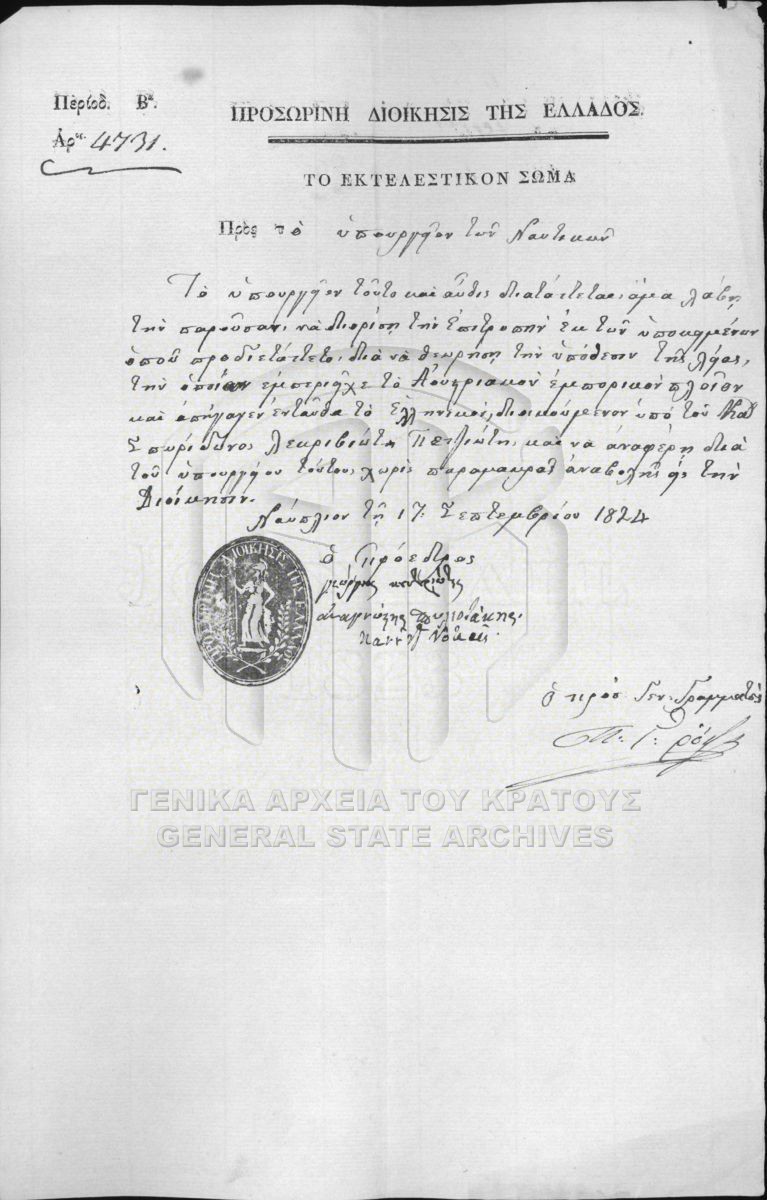 Περίοδ. Βα.
ΠΡΟΣΩΡΙΝΗ ΔΙΟΙΚΗΣΙΣ ΤΗΣ ΕΛΛΑΔΟΣ.
Ἀρ. 4731.
ΤΟ ΕΚΤΕΛΕΣΤΙΚΟΝ ΣΩΜΑ
Πρὸς τὸ ὑπουργεῖον τῶν Ναυτικῶν
Τὸ ὑπουργεῖον τοῦτο καὶ αὖθις διατάττεται, ἅμα λάβῃ
τὴν παροῦσαν, νὰ διορίσῃ τὴν Ἐπιτροπὴν ἐκ τῶν ὑποκειμένων
ὁποῦ προδιετάττετο, διὰ νὰ θεωρήσῃ τὴν ὑπόθεσιν τῆς λείας,
τὴν ὁποίαν ἐμπεριεῖχε τὸ Αὐστριακὸν ἐμπορικὸν πλοῖον
καὶ ἀπήγαγεν ἐνταῦθα τὸ Ἑλληνικόν, διοικούμενον ὑπὸ τοῦ
Σπυρίδωνος Πετζιώτη, καὶ νὰ ἀναφέρῃ διὰ
τοῦ ὑπουργείου τούτου χωρὶς παραμικρᾶς ἀναβολῆς εἰς τὴν
Διοίκησιν.
Ναύπλιον τῇ 17: Σεπτεμβρίου 1824
ὁ Πρόεδρος
ΠΡΟΣΩΡΙΝΗ ΔΙΟΙΚΗΣΙΣ ΤΗΣ ΕΛΛΑΔΟΣ
ὁ προσ: Γεν: Γραμματεὺς
Π: Γ: Ρόδιος
ΓΕΝΙΚΑ ΑΡΧΕΙΑ ΤΟΥ ΚΡΑΤΟΥΣ
GENERAL STATE ARCHIVES